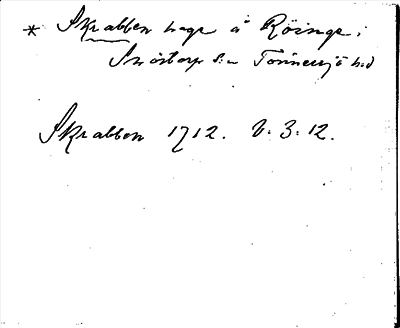 * Skrabben hage å Röinge i
Snöstorp s:n Tönnersjö h:d
Skrabben 1712. V. 3. 12.